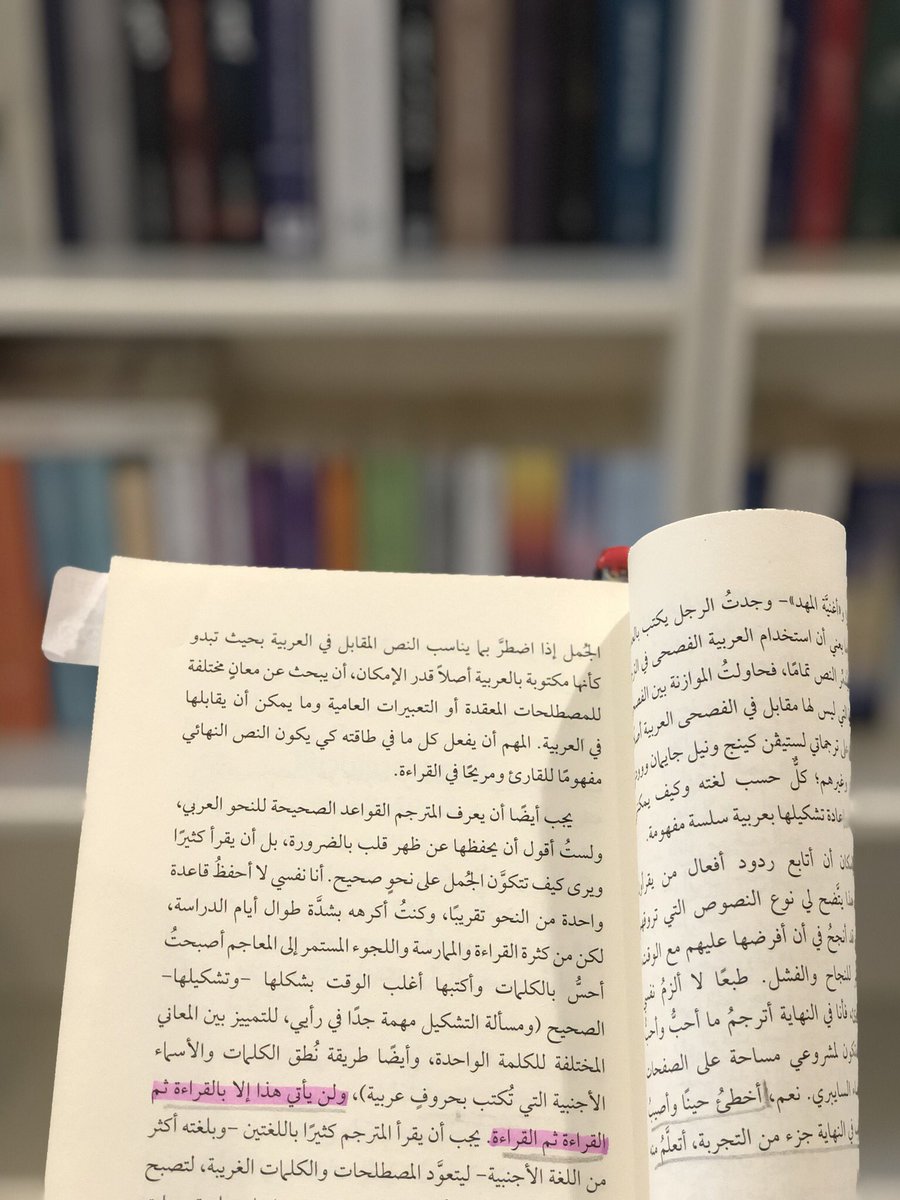 و«أغنيَّة المهد»- وجدتُ الرجل يكتب
يعني أن استخدام العربية الفصحى في
النص تمامًا، فحاولتُ الموازنة بين
التي ليس لها مقابل في الفصحى العربية
ترجماتي لستيڤن كينج ونيل جايمان
وغيرهم؛ كلٌّ حسب لغته وكيف
إعادة تشكيلها بعربية سلسة مفهومة.
أن أتابع ردود أفعال من
يتَّضح لي نوع النصوص التي
أنجحُ في أن أفرضها عليهم مع
للنجاح والفشل. طبعًا لا ألزمُ
فأنا في النهاية أترجمُ ما أحبُّ
لمشروعي مساحة على
السايبري. نعم، أخطئُ حينًا وأصيبُ
في النهاية جزء من التجربة، أتعلَّمُ
الجُمل إذا اضطرَّ بما يناسب النص المقابل في العربية بحيث تبدو
كأنها مكتوبة بالعربية أصلاً قدر الإمكان، أن يبحث عن معانٍ مختلفة
للمصطلحات المعقدة أو التعبيرات العامية وما يمكن أن يقابلها
في العربية. المهم أن يفعل كل ما في طاقته كي يكون النص النهائي
مفهومًا للقارئ ومريحًا في القراءة.
يجب أيضًا أن يعرف المترجم القواعد الصحيحة للنحو العربي،
ولستُ أقول أن يحفظها عن ظهر قلب بالضرورة، بل أن يقرأ كثيرًا
ويرى كيف تتكوَّن الجُمل على نحوٍ صحيح. أنا نفسي لا أحفظُ قاعدة
واحدة من النحو تقريبًا، وكنتُ أكرهه بشدَّة طوال أيام الدراسة،
لكن من كثرة القراءة والممارسة واللجوء المستمر إلى المعاجم أصبحتُ
أحسُّ بالكلمات وأكتبها أغلب الوقت بشكلها -وتشكيلها-
الصحيح (ومسألة التشكيل مهمة جدًا في رأيي، للتمييز بين المعاني
المختلفة للكلمة الواحدة، وأيضًا طريقة نُطق الكلمات والأسماء
الأجنبية التي تُكتب بحروفٍ عربية)، ولن يأتي هذا إلا بالقراءة ثم
القراءة ثم القراءة. يجب أن يقرأ المترجم كثيرًا باللغتين -وبلغته أكثر
من اللغة الأجنبية- ليتعوَّد المصطلحات والكلمات الغريبة، لتصبح